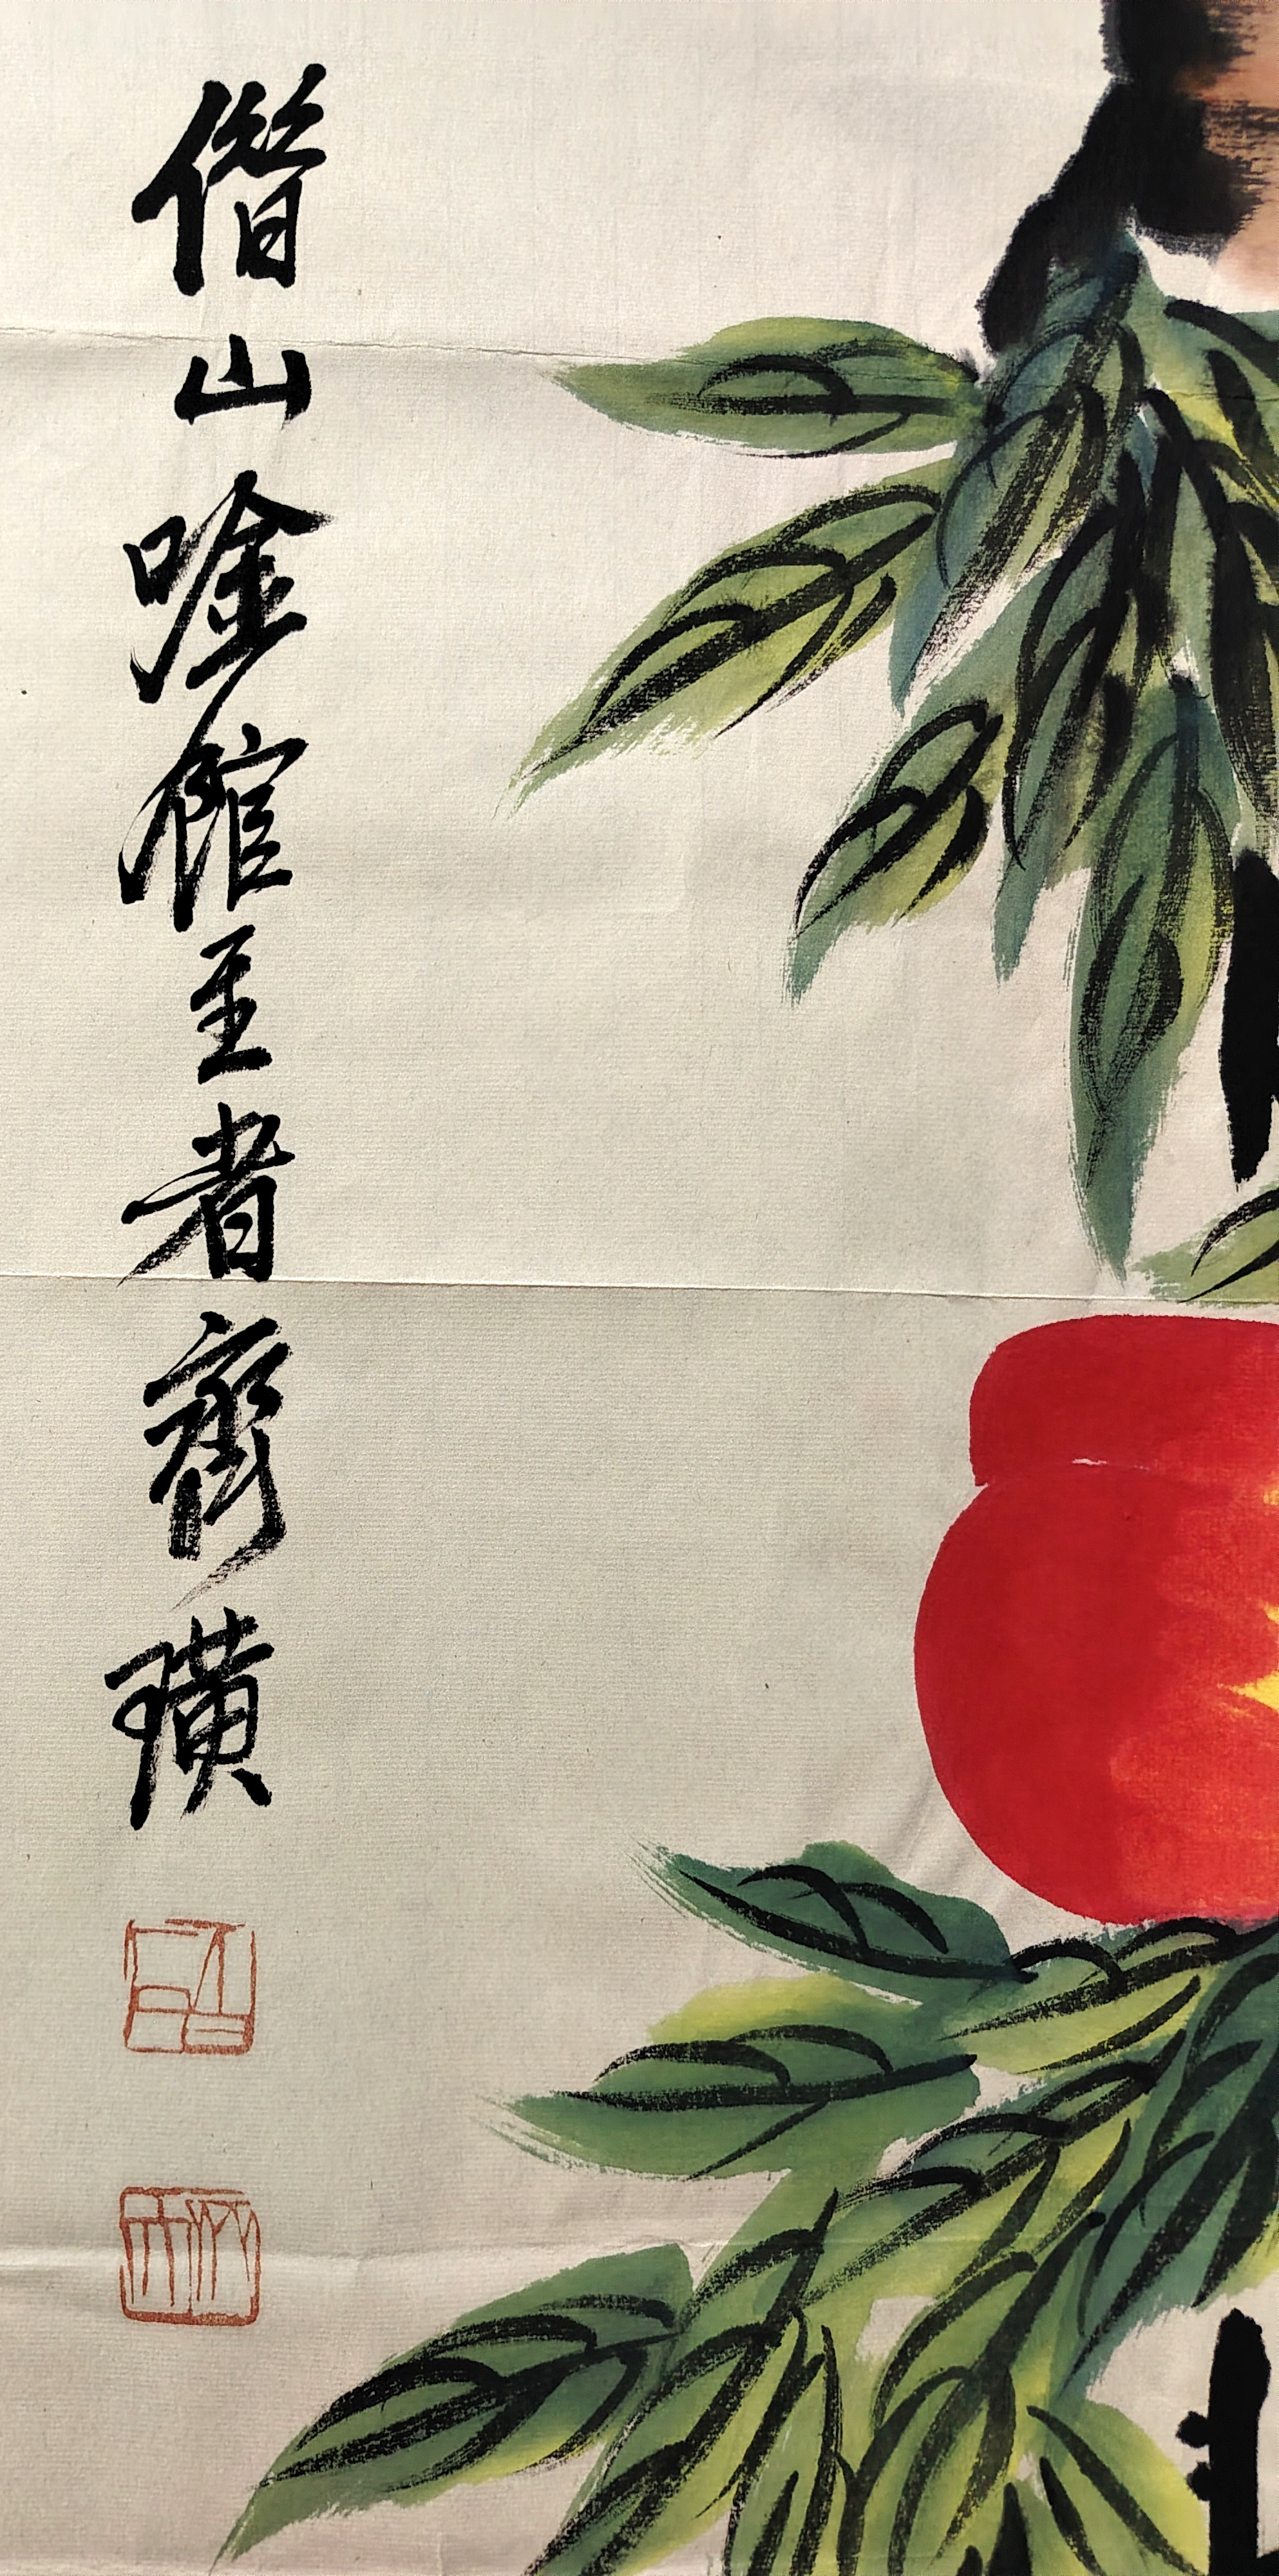 借山唫館主者齊璜